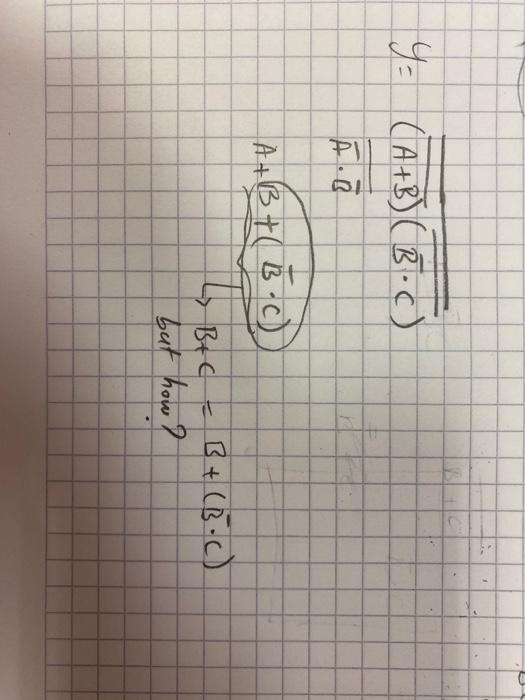 y = (A+B)(B̅·C)
A̅·B̅
A+B+(B̅·C)
↳ B+C = B+(B̅·C)
but how?
B+C